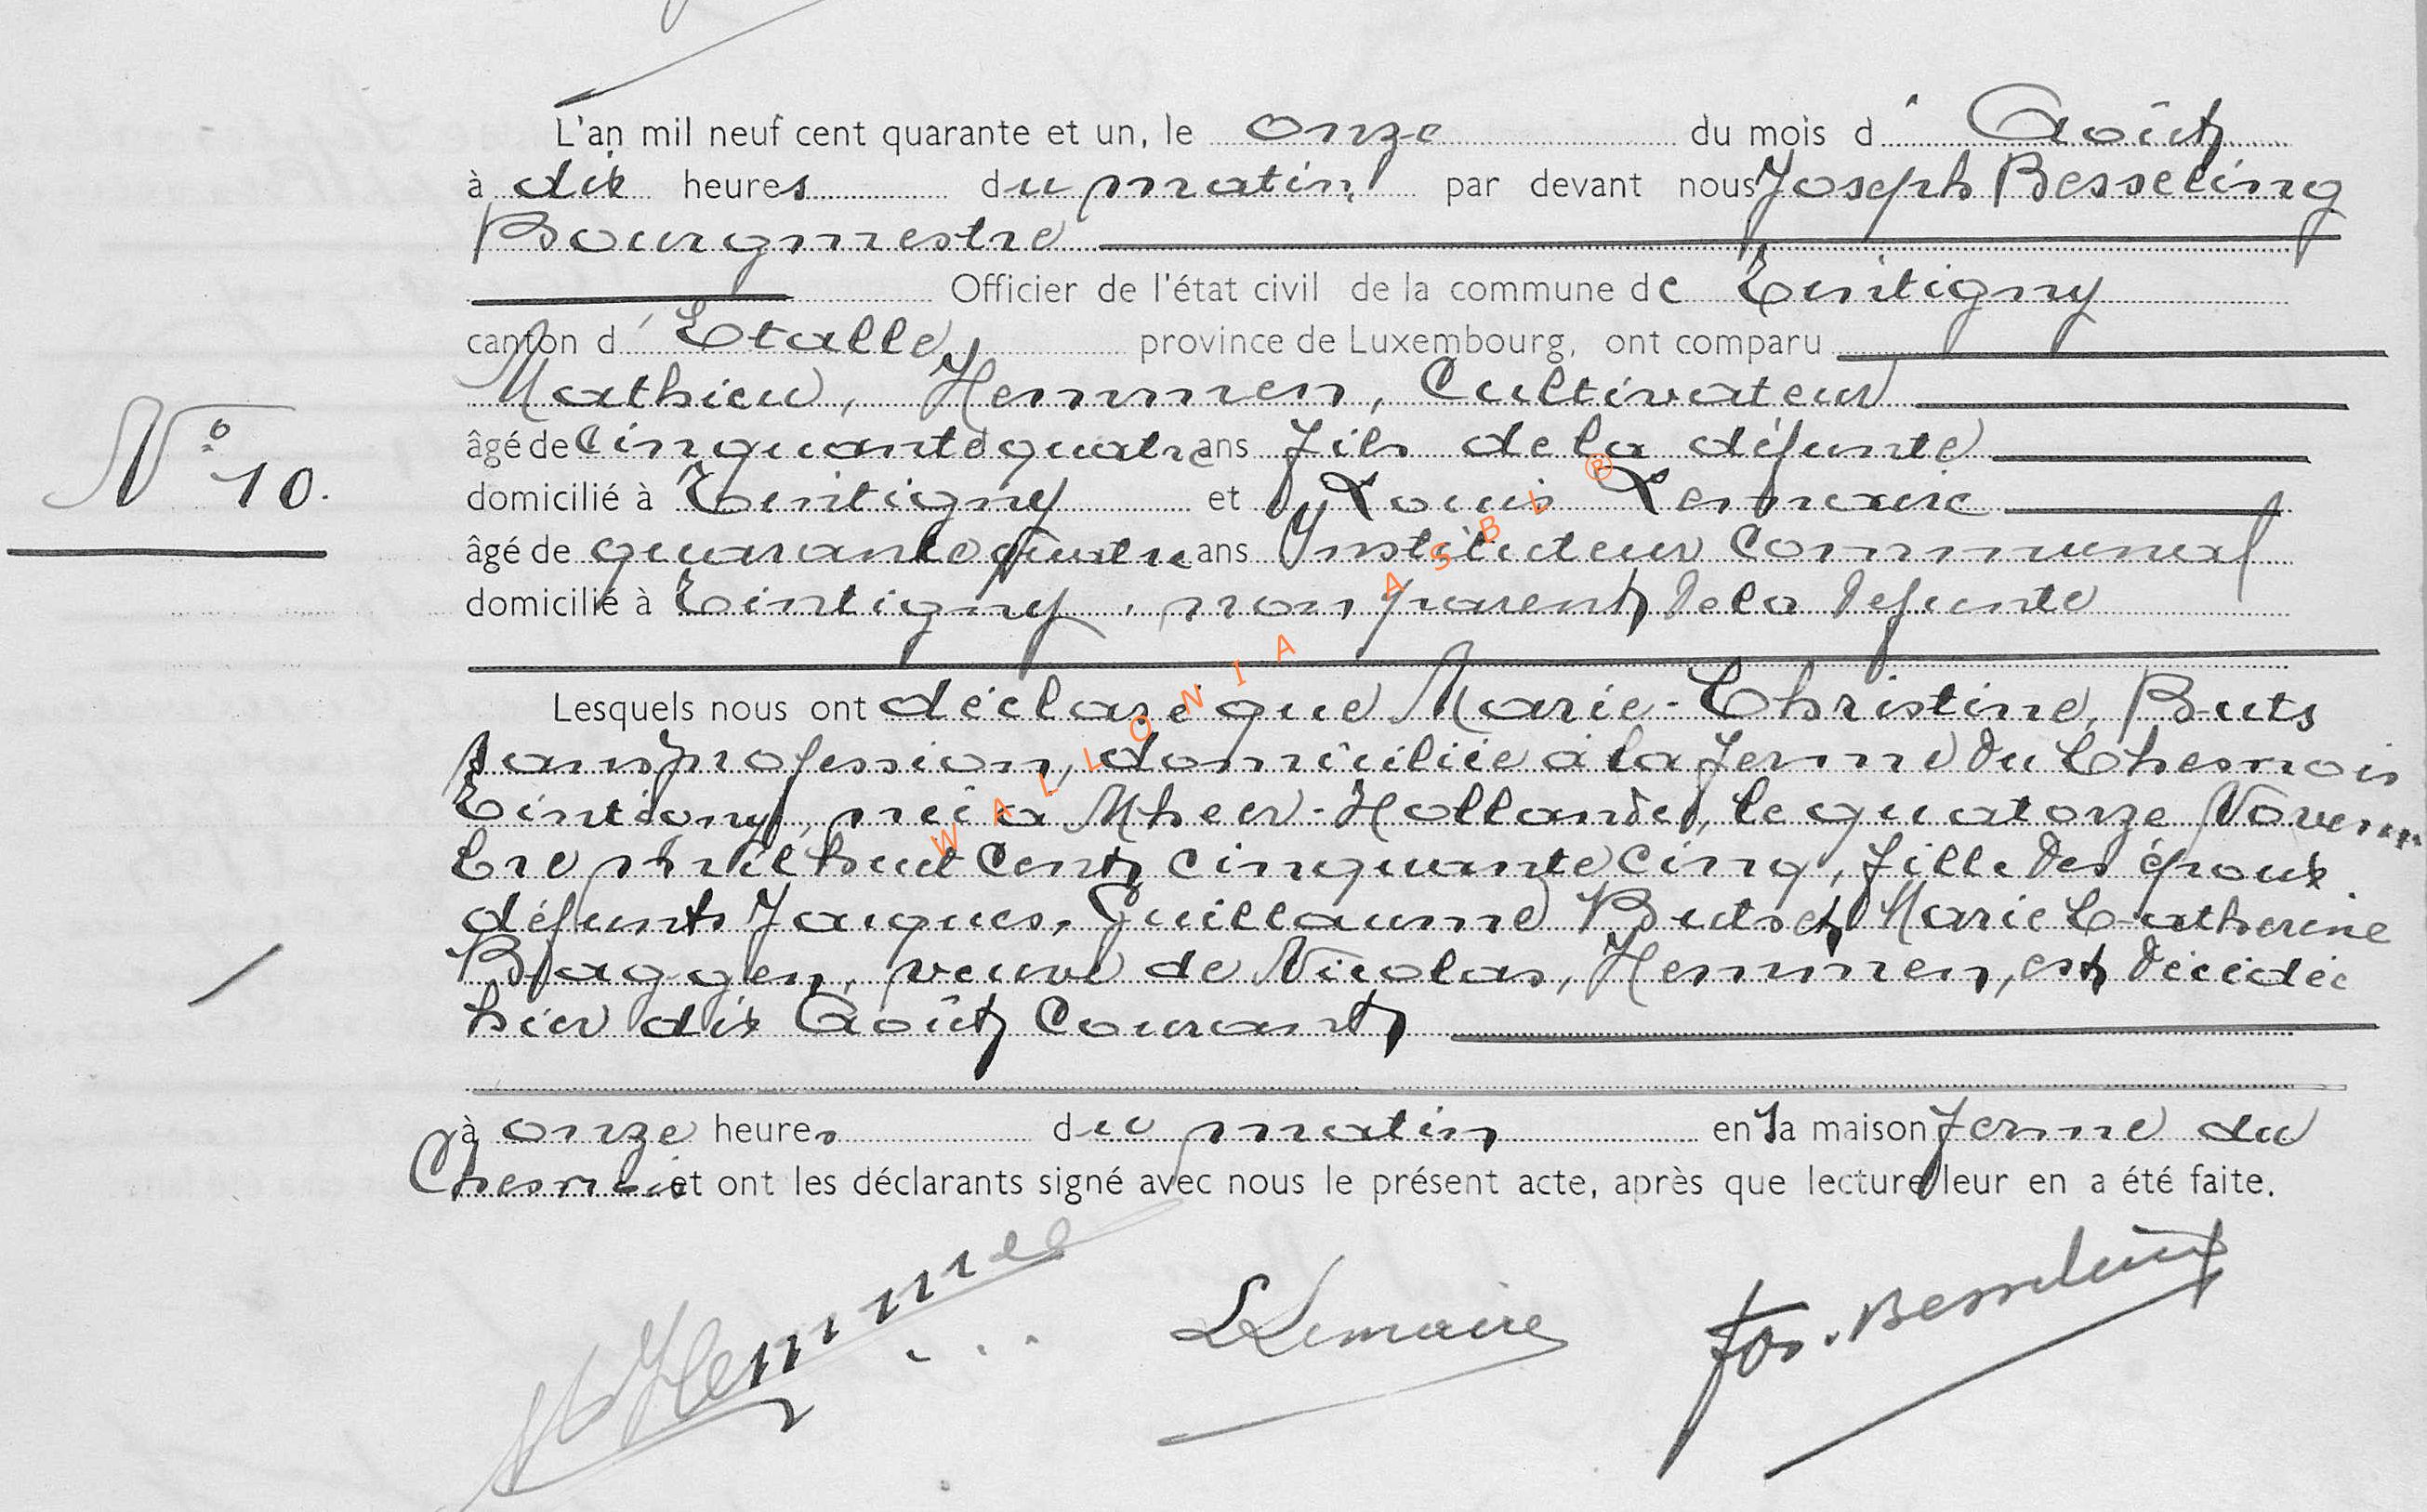 L'an mil neuf cent quarante et un, le onze du mois d' Août
à dix heures du matin, par devant nous Joseph Besseling
Bourgmestre
Officier de l'état civil de la commune de Tintigny
canton d'Etalle province de Luxembourg, ont comparu
Mathieu, Hemmen, Cultivateur
âgé de Cinquante quatre ans fils de la défunte
N° 10.
domicilié à Tintigny et Louis Lemaire
âgé de quarante quatre ans Instituteur Communal
domicilié à Tintigny, non parent de la défunte
Lesquels nous ont déclaré que Marie-Christine, Buts
sans profession, domiciliée à la ferme du Chesnois
Tintigny, née à Mheer-Hollande, le quatorze Novem
bre mil huit Cent cinquante cinq, fille des époux
défunts Jacques, Guillaume Buts et Marie Catherine
Baggen, veuve de Nicolas, Hemmen, est décédée
hier dix Août Courant
à onze heures du matin en la maison ferme du
Chesnois et ont les déclarants signé avec nous le présent acte, après que lecture leur en a été faite.
Hemmen LLemaire Jos. Besseling
WALLONIA ASBL ®